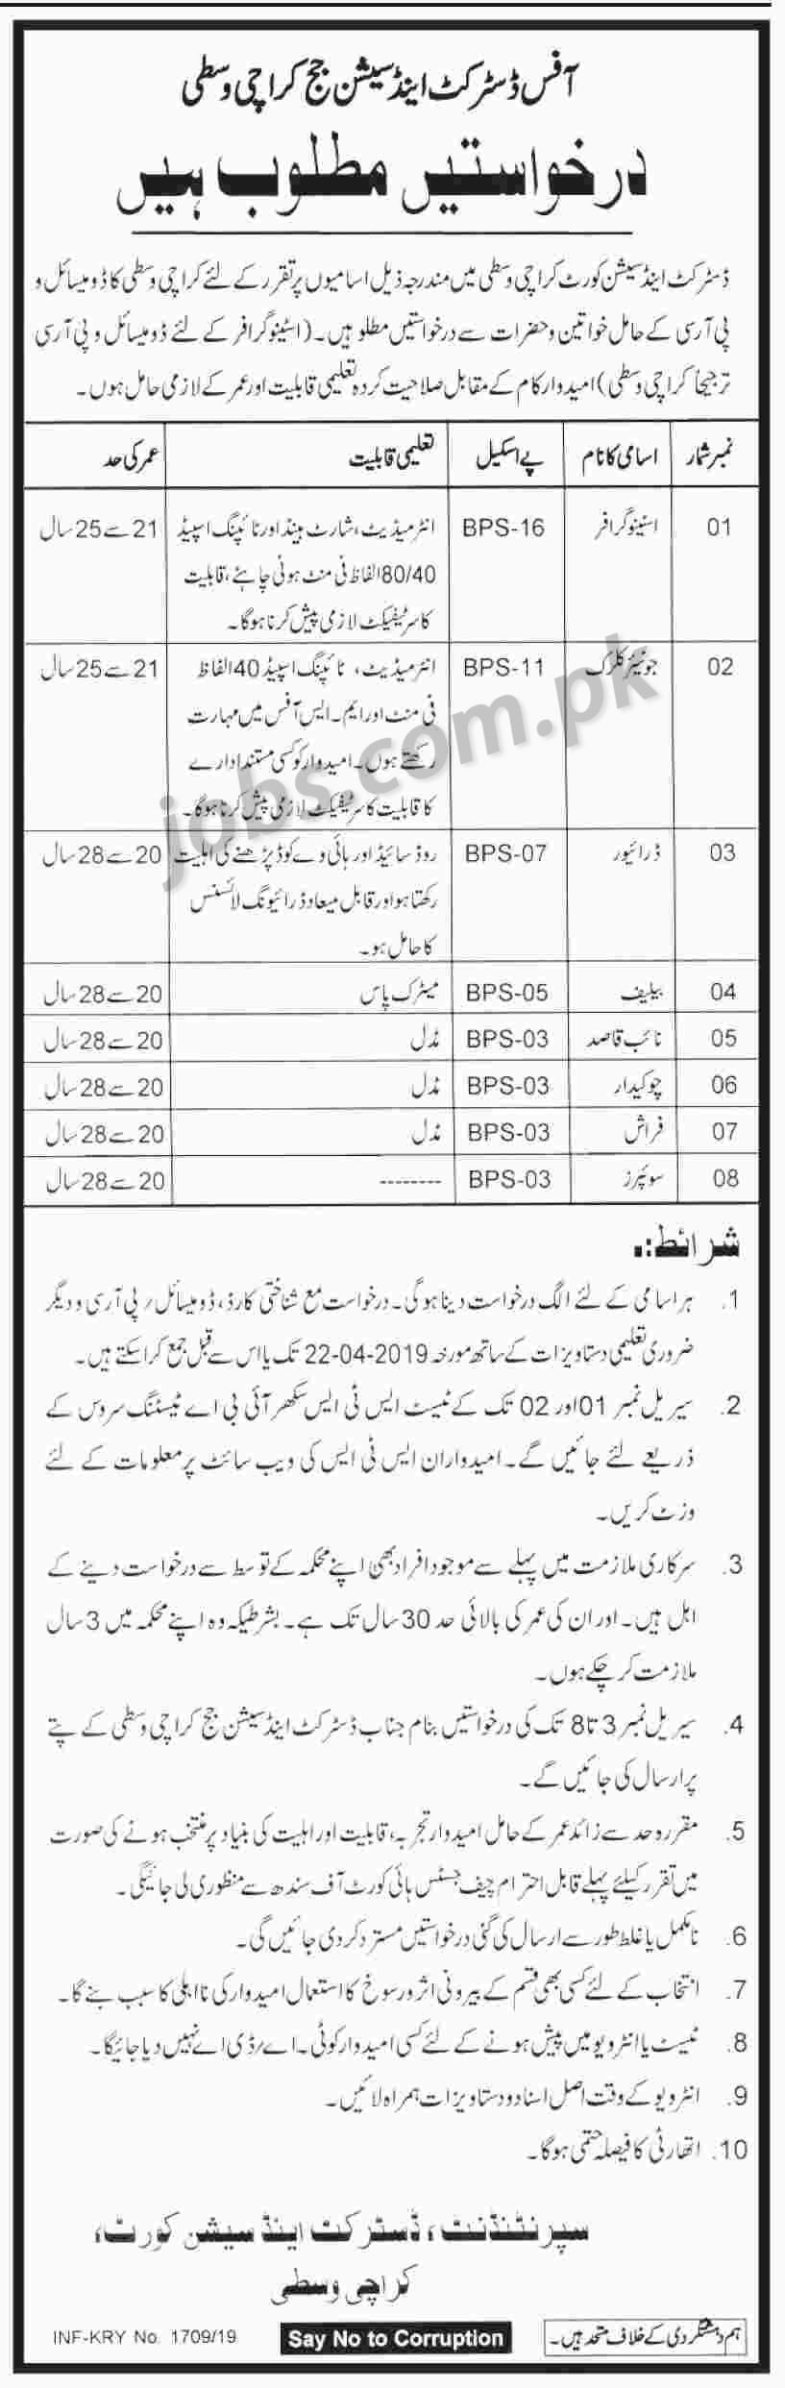 آفس ڈسٹرکٹ اینڈ سیشن جج کراچی وسطی
درخواستیں مطلوب ہیں
ڈسٹرکٹ اینڈ سیشن کورٹ کراچی وسطی میں مندرجہ ذیل اسامیوں پر تقرر کے لئے کراچی وسطی کا ڈومیسائل و
پی آر سی کے حامل خواتین و حضرات سے درخواستیں مطلوب ہیں۔ (اسٹینوگرافر کے لئے ڈومیسائل و پی آر سی
ترجیحاً کراچی وسطی) امیدوار کام کے مقابل صلاحیت کردہ تعلیمی قابلیت اور عمر کے لازمی حامل ہوں۔
نمبر شمار اسامی کا نام پے اسکیل تعلیمی قابلیت عمر کی حد
01 اسٹینوگرافر BPS-16 انٹرمیڈیٹ، شارٹ ہینڈ اور ٹائپنگ اسپیڈ 21 سے 25 سال
80/40 الفاظ فی منٹ ہونی چاہئے، قابلیت
کا سرٹیفکیٹ لازمی پیش کرنا ہوگا۔
02 جونیئر کلرک BPS-11 انٹرمیڈیٹ، ٹائپنگ اسپیڈ 40 الفاظ 21 سے 25 سال
فی منٹ اور ایم۔ ایس آفس میں مہارت
رکھتے ہوں۔ امیدوار کو کسی مستند ادارے
کا قابلیت کا سرٹیفکیٹ لازمی پیش کرنا ہوگا۔
03 ڈرائیور BPS-07 روڈ سائیڈ اور ہائی وے کوڈ پڑھنے کی اہلیت 20 سے 28 سال
رکھتا ہو اور قابل میعاد ڈرائیونگ لائسنس
کا حامل ہو۔
04 بیلیف BPS-05 میٹرک پاس 20 سے 28 سال
05 نائب قاصد BPS-03 مڈل 20 سے 28 سال
06 چوکیدار BPS-03 مڈل 20 سے 28 سال
07 فراش BPS-03 مڈل 20 سے 28 سال
08 سوئپرز BPS-03 -------- 20 سے 28 سال
jobs.com.pk
شرائط:۔
1. ہر اسامی کے لئے الگ درخواست دینا ہوگی۔ درخواست مع شناختی کارڈ، ڈومیسائل / پی آر سی و دیگر
ضروری تعلیمی دستاویزات کے ساتھ مورخہ 22-04-2019 تک یا اس سے قبل جمع کراسکتے ہیں۔
2. سیریل نمبر 01 اور 02 تک کے ٹیسٹ ایس ٹی ایس سکھر آئی بی اے ٹیسٹنگ سروس کے
ذریعے لئے جائیں گے۔ امیدواران ایس ٹی ایس کی ویب سائٹ پر معلومات کے لئے
وزٹ کریں۔
3. سرکاری ملازمت میں پہلے سے موجود افراد بھی اپنے محکمہ کے توسط سے درخواست دینے کے
اہل ہیں۔ اور ان کی عمر کی بالائی حد 30 سال تک ہے۔ بشرطیکہ وہ اپنے محکمہ میں 3 سال
ملازمت کرچکے ہوں۔
4. سیریل نمبر 3 تا 8 تک کی درخواستیں بنام جناب ڈسٹرکٹ اینڈ سیشن جج کراچی وسطی کے پتے
پر ارسال کی جائیں گے۔
5. مقررہ حد سے زائد عمر کے حامل امیدوار تجربہ، قابلیت اور اہلیت کی بنیاد پر منتخب ہونے کی صورت
میں تقرر کیلئے پہلے قابل احترام چیف جسٹس ہائی کورٹ آف سندھ سے منظوری لی جائیگی۔
6. نامکمل یا غلط طور سے ارسال کی گئی درخواستیں مسترد کردی جائیں گی۔
7. انتخاب کے لئے کسی بھی قسم کے بیرونی اثر و رسوخ کا استعمال امیدوار کی نااہلی کا سبب بنے گا۔
8. ٹیسٹ یا انٹرویو میں پیش ہونے کے لئے کسی امیدوار کو ٹی۔ اے / ڈی اے نہیں دیا جائیگا۔
9. انٹرویو کے وقت اصل اسناد و دستاویزات ہمراہ لائیں۔
10. اتھارٹی کا فیصلہ حتمی ہوگا۔
سپرنٹنڈنٹ، ڈسٹرکٹ اینڈ سیشن کورٹ،
کراچی وسطی
ہم دہشتگردی کے خلاف متحد ہیں۔ Say No to Corruption INF-KRY No. 1709/19